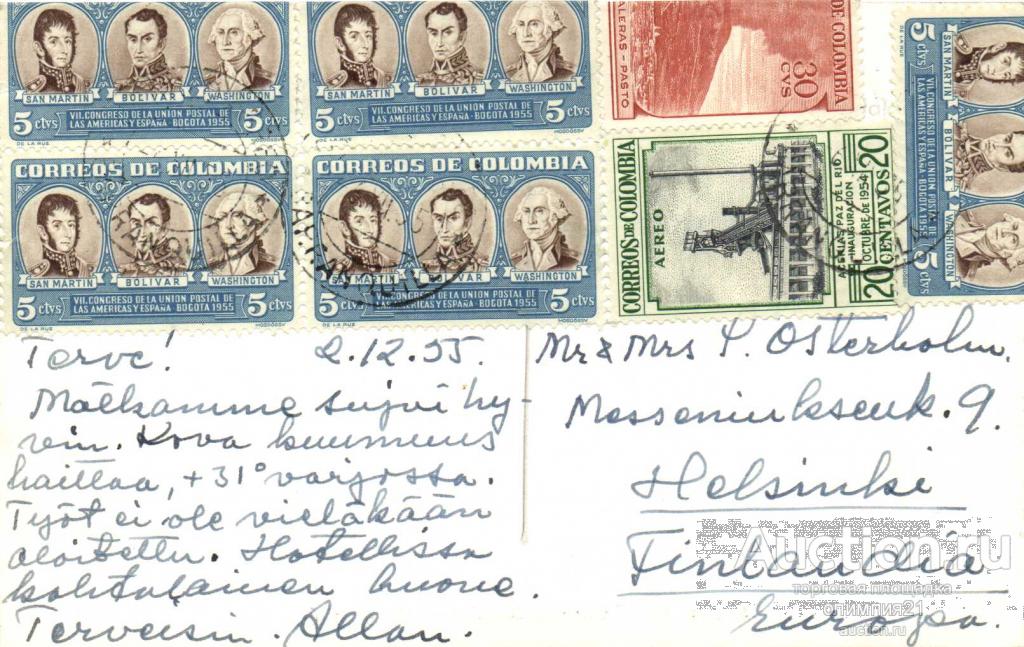 SAN MARTIN BOLIVAR WASHINGTON
5 ctvs VII. CONGRESO DE LA UNION POSTAL DE LAS AMERICAS Y ESPAÑA - BOGOTA 1955 5 ctvs
DE LA RUE
SAN MARTIN BOLIVAR WASHINGTON
5 ctvs VII. CONGRESO DE LA UNION POSTAL DE LAS AMERICAS Y ESPAÑA - BOGOTA 1955 5 ctvs
DE LA RUE
ALERAS - PASTO
30 CVS
DE COLOMBIA
5 SAN MARTIN BOLIVAR WASHINGTON
VII. CONGRESO DE LA UNION POSTAL DE
LAS AMERICAS Y ESPAÑA - BOGOTA 1955
5 ctvs
DE LA RUE
CORREOS DE COLOMBIA
SAN MARTIN BOLIVAR WASHINGTON
5 ctvs VII. CONGRESO DE LA UNION POSTAL DE LAS AMERICAS Y ESPAÑA - BOGOTA 1955 5 ctvs
DE LA RUE
CORREOS DE COLOMBIA
SAN MARTIN BOLIVAR WASHINGTON
5 ctvs VII. CONGRESO DE LA UNION POSTAL DE LAS AMERICAS Y ESPAÑA - BOGOTA 1955 5 ctvs
DE LA RUE
CORREOS DE COLOMBIA
AEREO
ACERIAS PAZ DEL RIO
INAUGURACION
OCTUBRE DE 1954
20 CENTAVOS 20
Terve! 2.12.55.
Matkamme sujui hy-
vin. Kova kuumuus
haittaa, +31° varjossa.
Työt ei ole vieläkään
aloitettu. Hotellissa
kohtalainen huone.
Terveisin. Allan.
Mr & Mrs P. Osterholm.
Messeniuksenk. 9.
Helsinki
Finlandia
Europa.
Auction.ru
торговая площадка
олИМпия21
auction.ru